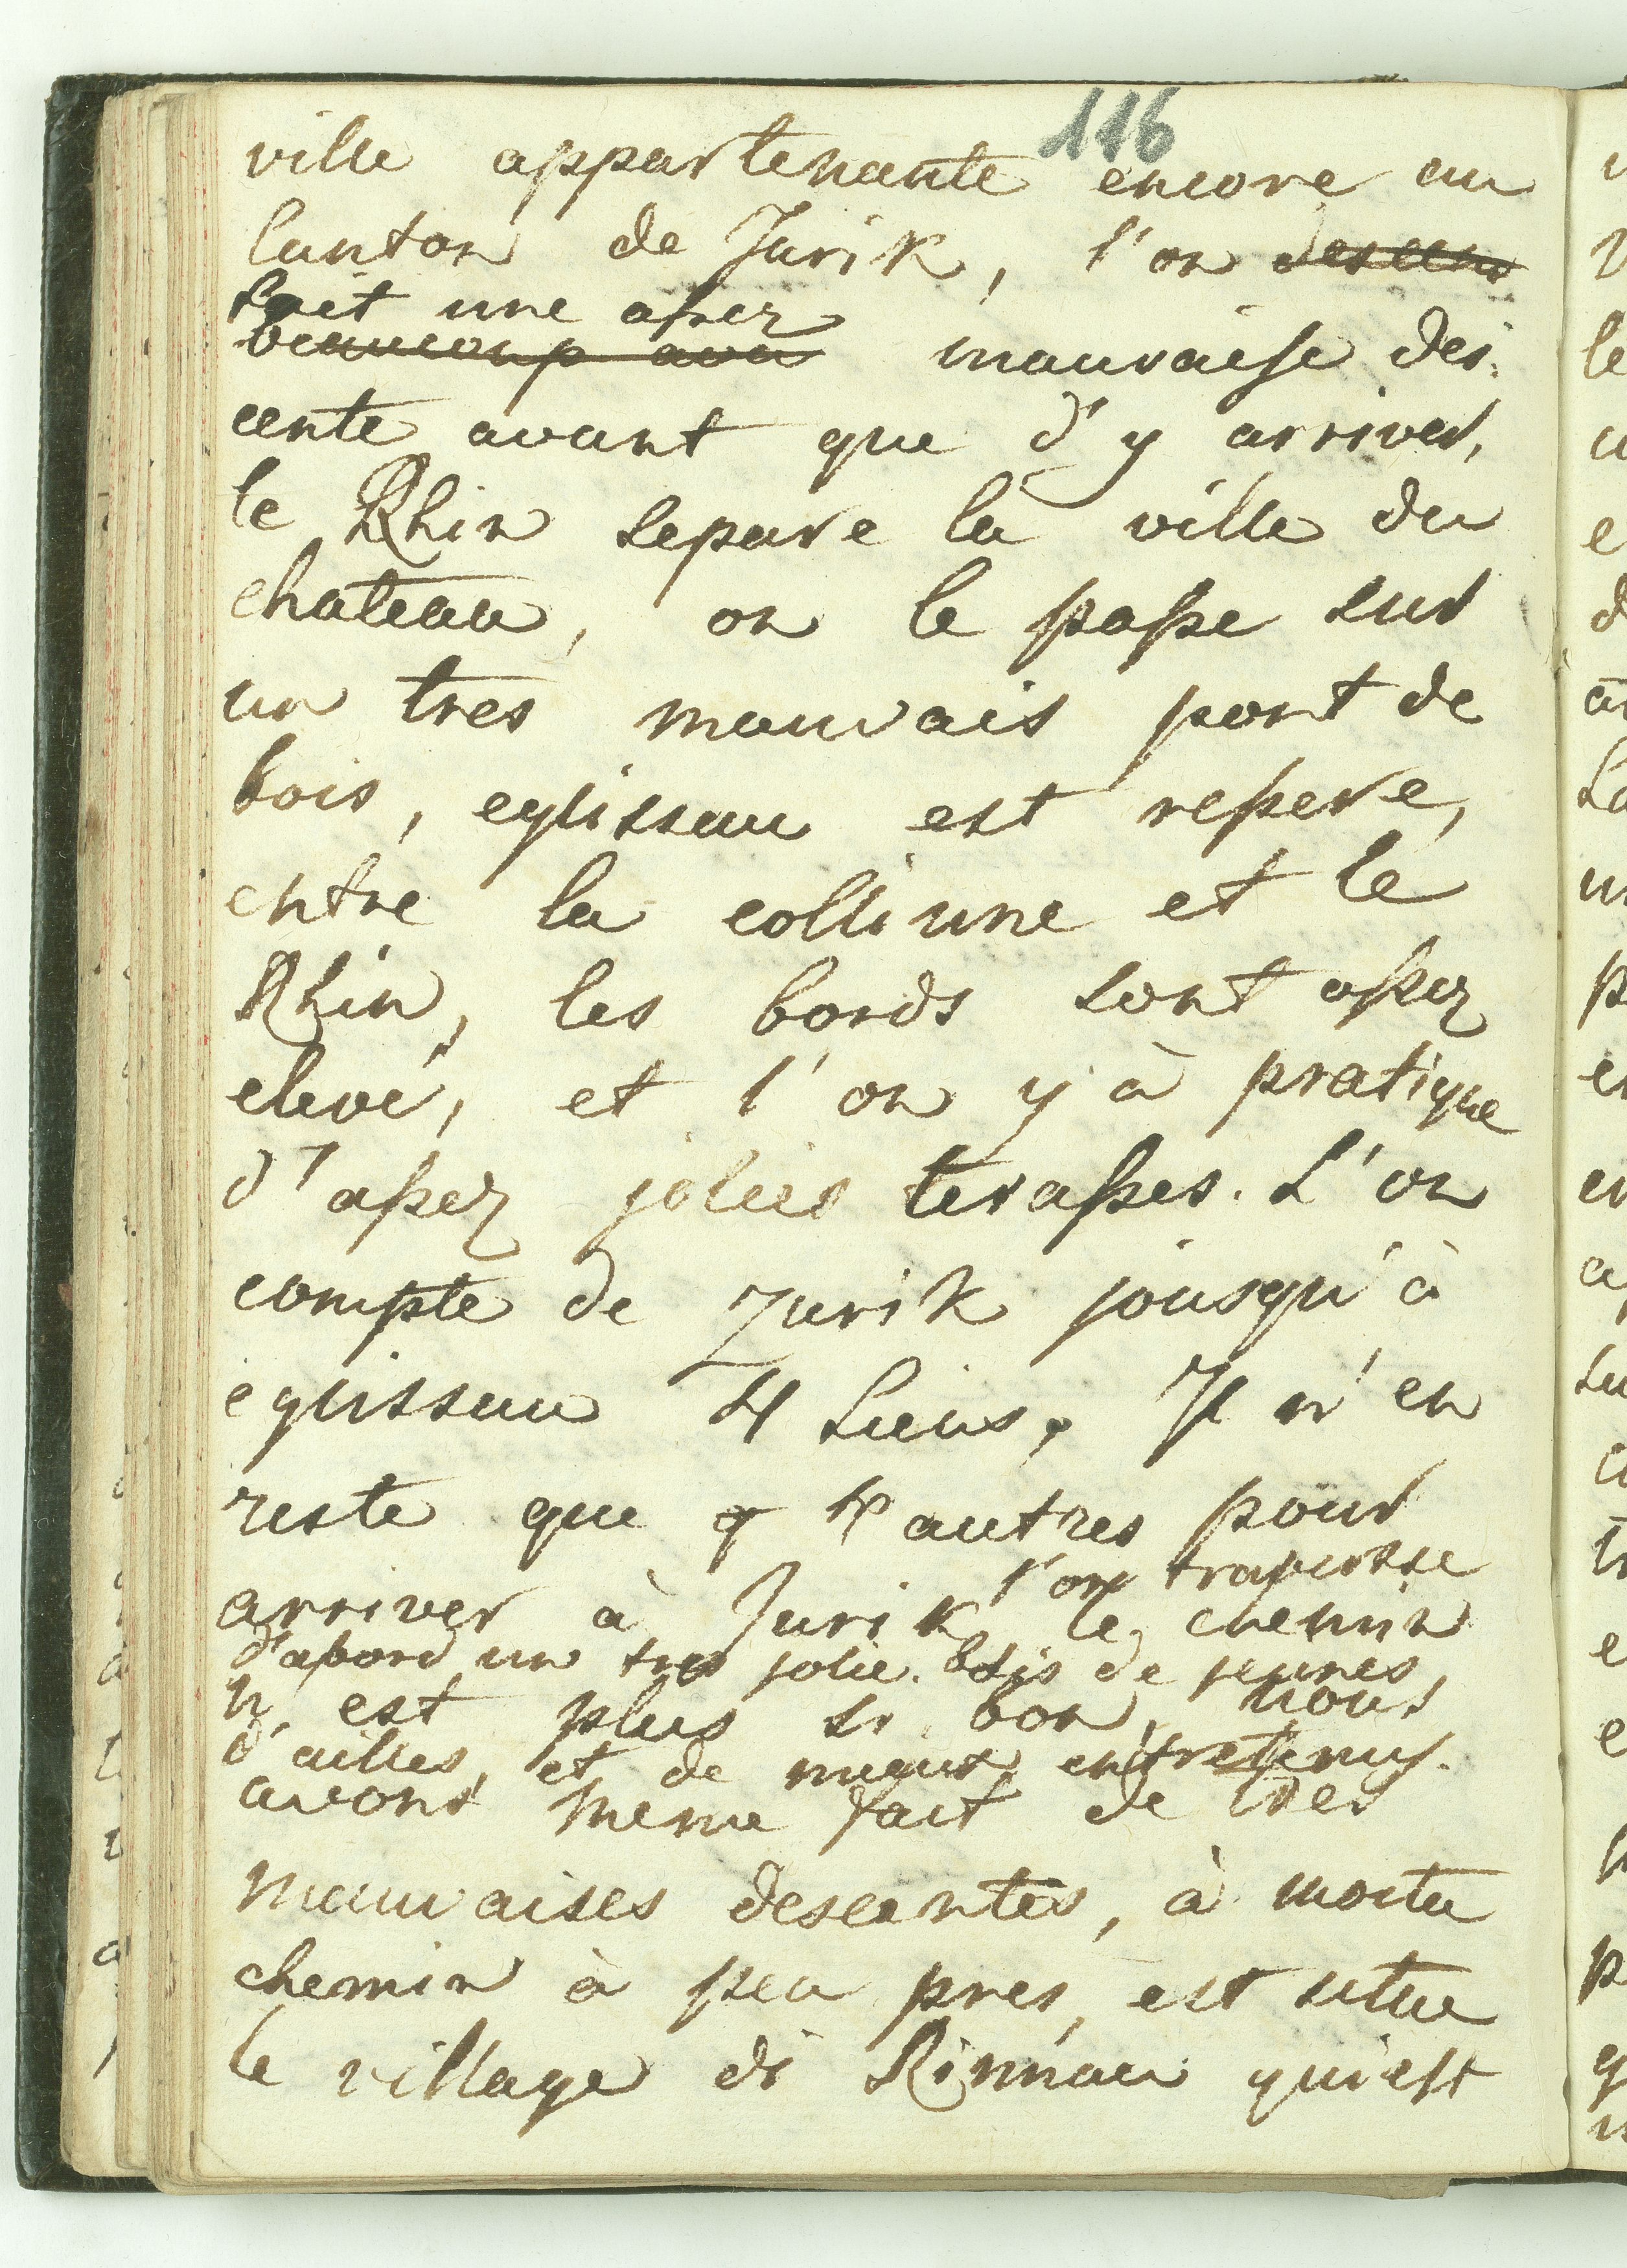 116
ville appartenante encore au
Canton de Zurik, l'on descens
fait une assez
beaucoup
mauvaise des:
cente avant que d'y arriver,
le Rhin separe la ville du
chateau, on le passe sur
un tres mauvais pont de
bois, eglissau est resseré,
entre la collinne et le
Rhin, les bords sont assez
elevé, et l'on y à pratique
d'assez jolies terasses. L'on
compte de Zurik jousqu'à
eglissau 4 Lieus, Il n'en
reste que 4 autres pour
l'on traversse
arriver à Zurik le chemin
d'abord un tres jolie bois de jeunes
n'est plus si bon, nous
et de mieux entretenus.
avons meme fait de tres
mauvaises descentes, à moitu
chemin à peu pres, est situe
le village di Rinnau qui est